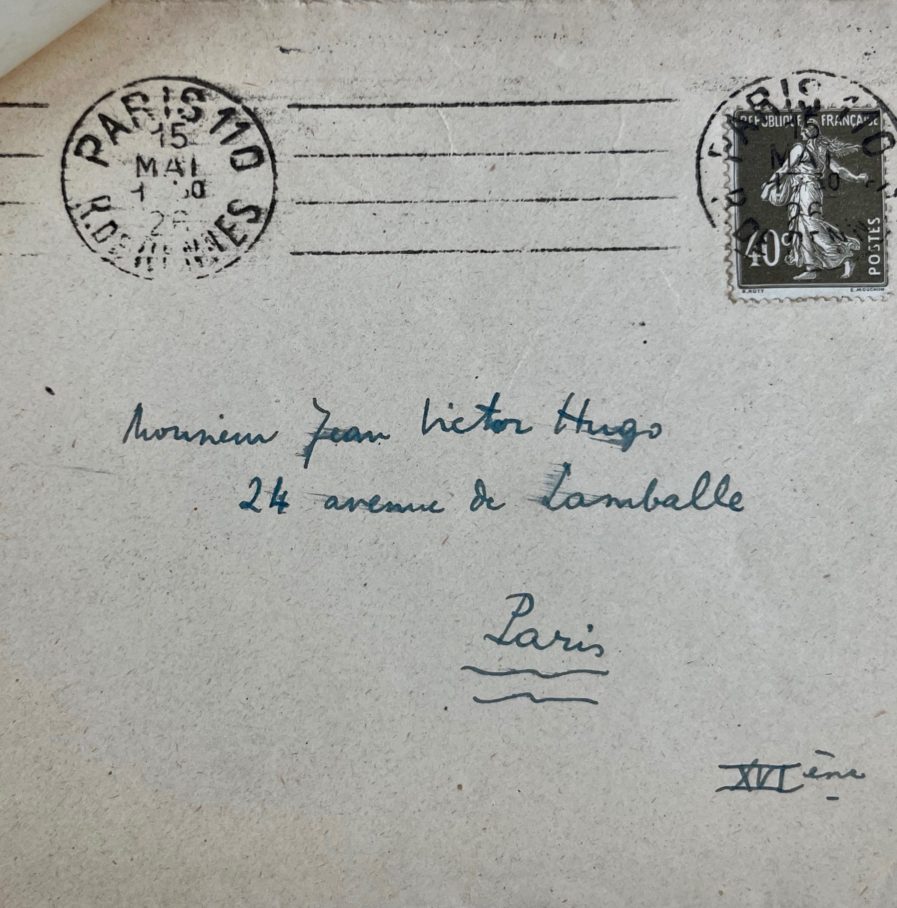 PARIS 110
15
MAI
26
R. DE RENNES
PARIS 110
15
MAI
26
REPUBLIQUE FRANÇAISE
40c
POSTES
E. MOUCHON
Monsieur Jean Victor Hugo
24 avenue de Lamballe
Paris
XVI ème